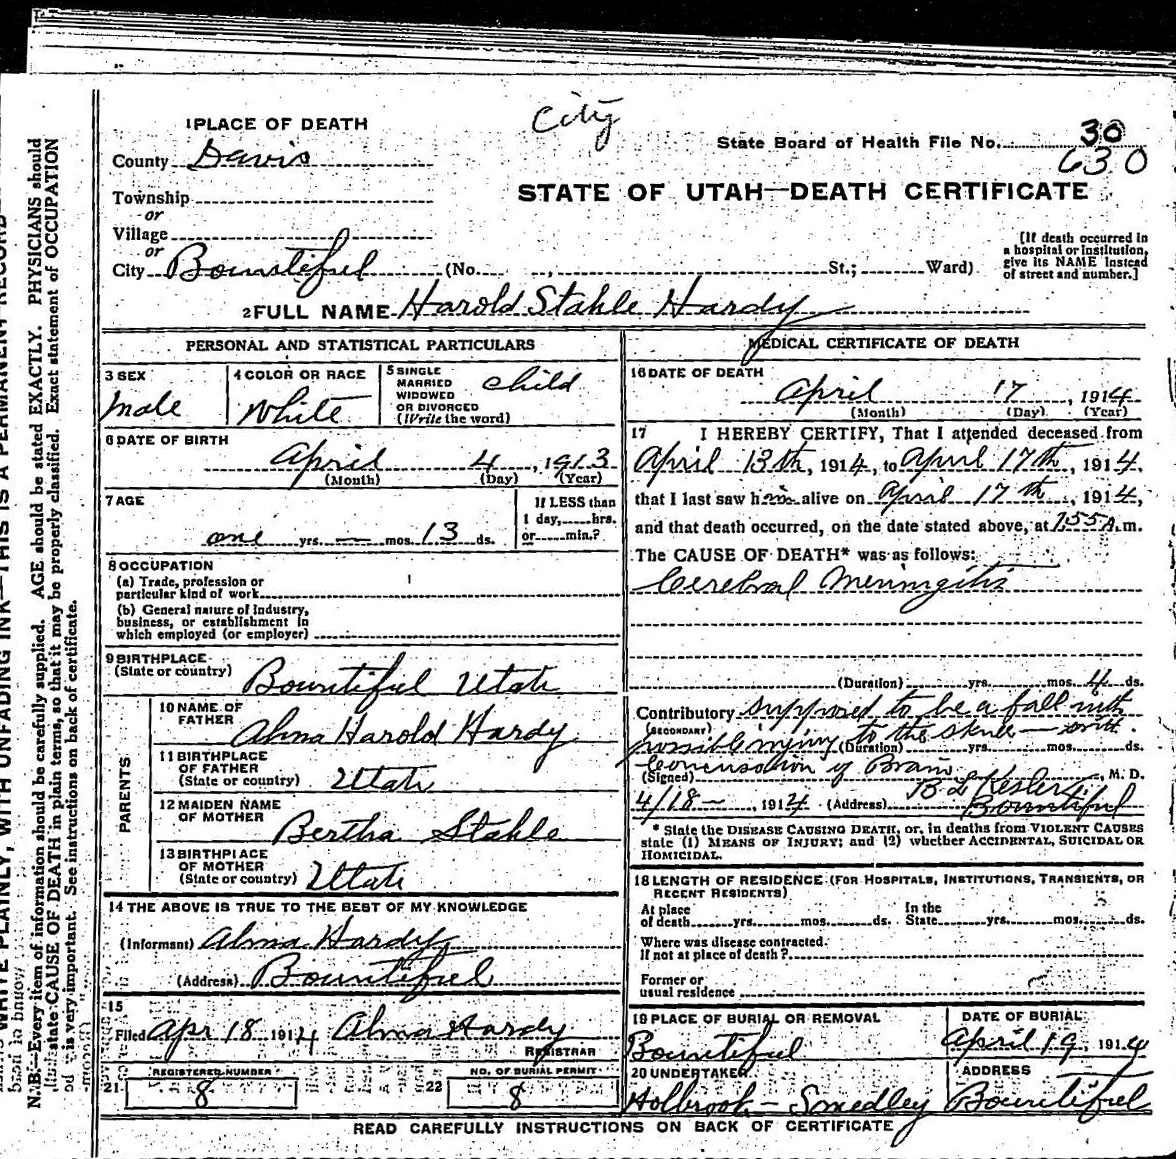 City
1 PLACE OF DEATH
County Davis
State Board of Health File No. 30
630
Township
or
STATE OF UTAH—DEATH CERTIFICATE
Village
or
City Bountiful (No. , St.; Ward)
[If death occurred in
a hospital or institution,
give its NAME instead
of street and number.]
2 FULL NAME Harold Stahle Hardy
PERSONAL AND STATISTICAL PARTICULARS
3 SEX
Male
4 COLOR OR RACE
White
5 SINGLE
MARRIED
WIDOWED
OR DIVORCED
(Write the word)
child
6 DATE OF BIRTH
April 4, 1913
(Month) (Day) (Year)
7 AGE
one yrs. — mos. 13 ds.
If LESS than
1 day, hrs.
or min.?
8 OCCUPATION
(a) Trade, profession or
particular kind of work
(b) General nature of industry,
business, or establishment in
which employed (or employer)
9 BIRTHPLACE
(State or country)
Bountiful Utah
PARENTS
10 NAME OF
FATHER
Alma Harold Hardy
11 BIRTHPLACE
OF FATHER
(State or country)
Utah
12 MAIDEN NAME
OF MOTHER
Bertha Stahle
13 BIRTHPLACE
OF MOTHER
(State or country)
Utah
14 THE ABOVE IS TRUE TO THE BEST OF MY KNOWLEDGE
(Informant) Alma Hardy
(Address) Bountiful
15
Filed Apr 18 1914 Alma Hardy
REGISTRAR
21 REGISTERED NUMBER
8
22 NO. OF BURIAL PERMIT
8
MEDICAL CERTIFICATE OF DEATH
16 DATE OF DEATH
April 17, 1914
(Month) (Day) (Year)
17 I HEREBY CERTIFY, That I attended deceased from
April 13th, 1914, to April 17th, 1914,
that I last saw him alive on April 17th, 1914,
and that death occurred, on the date stated above, at 7.55 A.m.
The CAUSE OF DEATH* was as follows:
Cerebral Meningitis
(Duration) yrs. mos. 4 ds.
Contributory supposed to be a fall with
(SECONDARY)
possible injury to the skull — with
(Duration) yrs. mos. ds.
Concussion of Brain
(Signed) B L Kesler, M. D.
4/18 — , 1914 (Address) Bountiful
* State the DISEASE CAUSING DEATH, or, in deaths from VIOLENT CAUSES
state (1) MEANS OF INJURY; and (2) whether ACCIDENTAL, SUICIDAL OR
HOMICIDAL.
18 LENGTH OF RESIDENCE (FOR HOSPITALS, INSTITUTIONS, TRANSIENTS, OR
RECENT RESIDENTS)
At place
of death yrs. mos. ds.
In the
State yrs. mos. ds.
Where was disease contracted.
If not at place of death?
Former or
usual residence
19 PLACE OF BURIAL OR REMOVAL
Bountiful
DATE OF BURIAL
April 19, 1914
20 UNDERTAKER
Holbrook - Smedley
ADDRESS
Bountiful
READ CAREFULLY INSTRUCTIONS ON BACK OF CERTIFICATE
WRITE PLAINLY, WITH UNFADING INK—THIS IS A PERMANENT RECORD
N.B.—Every item of information should be carefully supplied. AGE should be stated EXACTLY. PHYSICIANS should
state CAUSE OF DEATH in plain terms, so that it may be properly classified. Exact statement of OCCUPATION
is very important. See instructions on back of certificate.